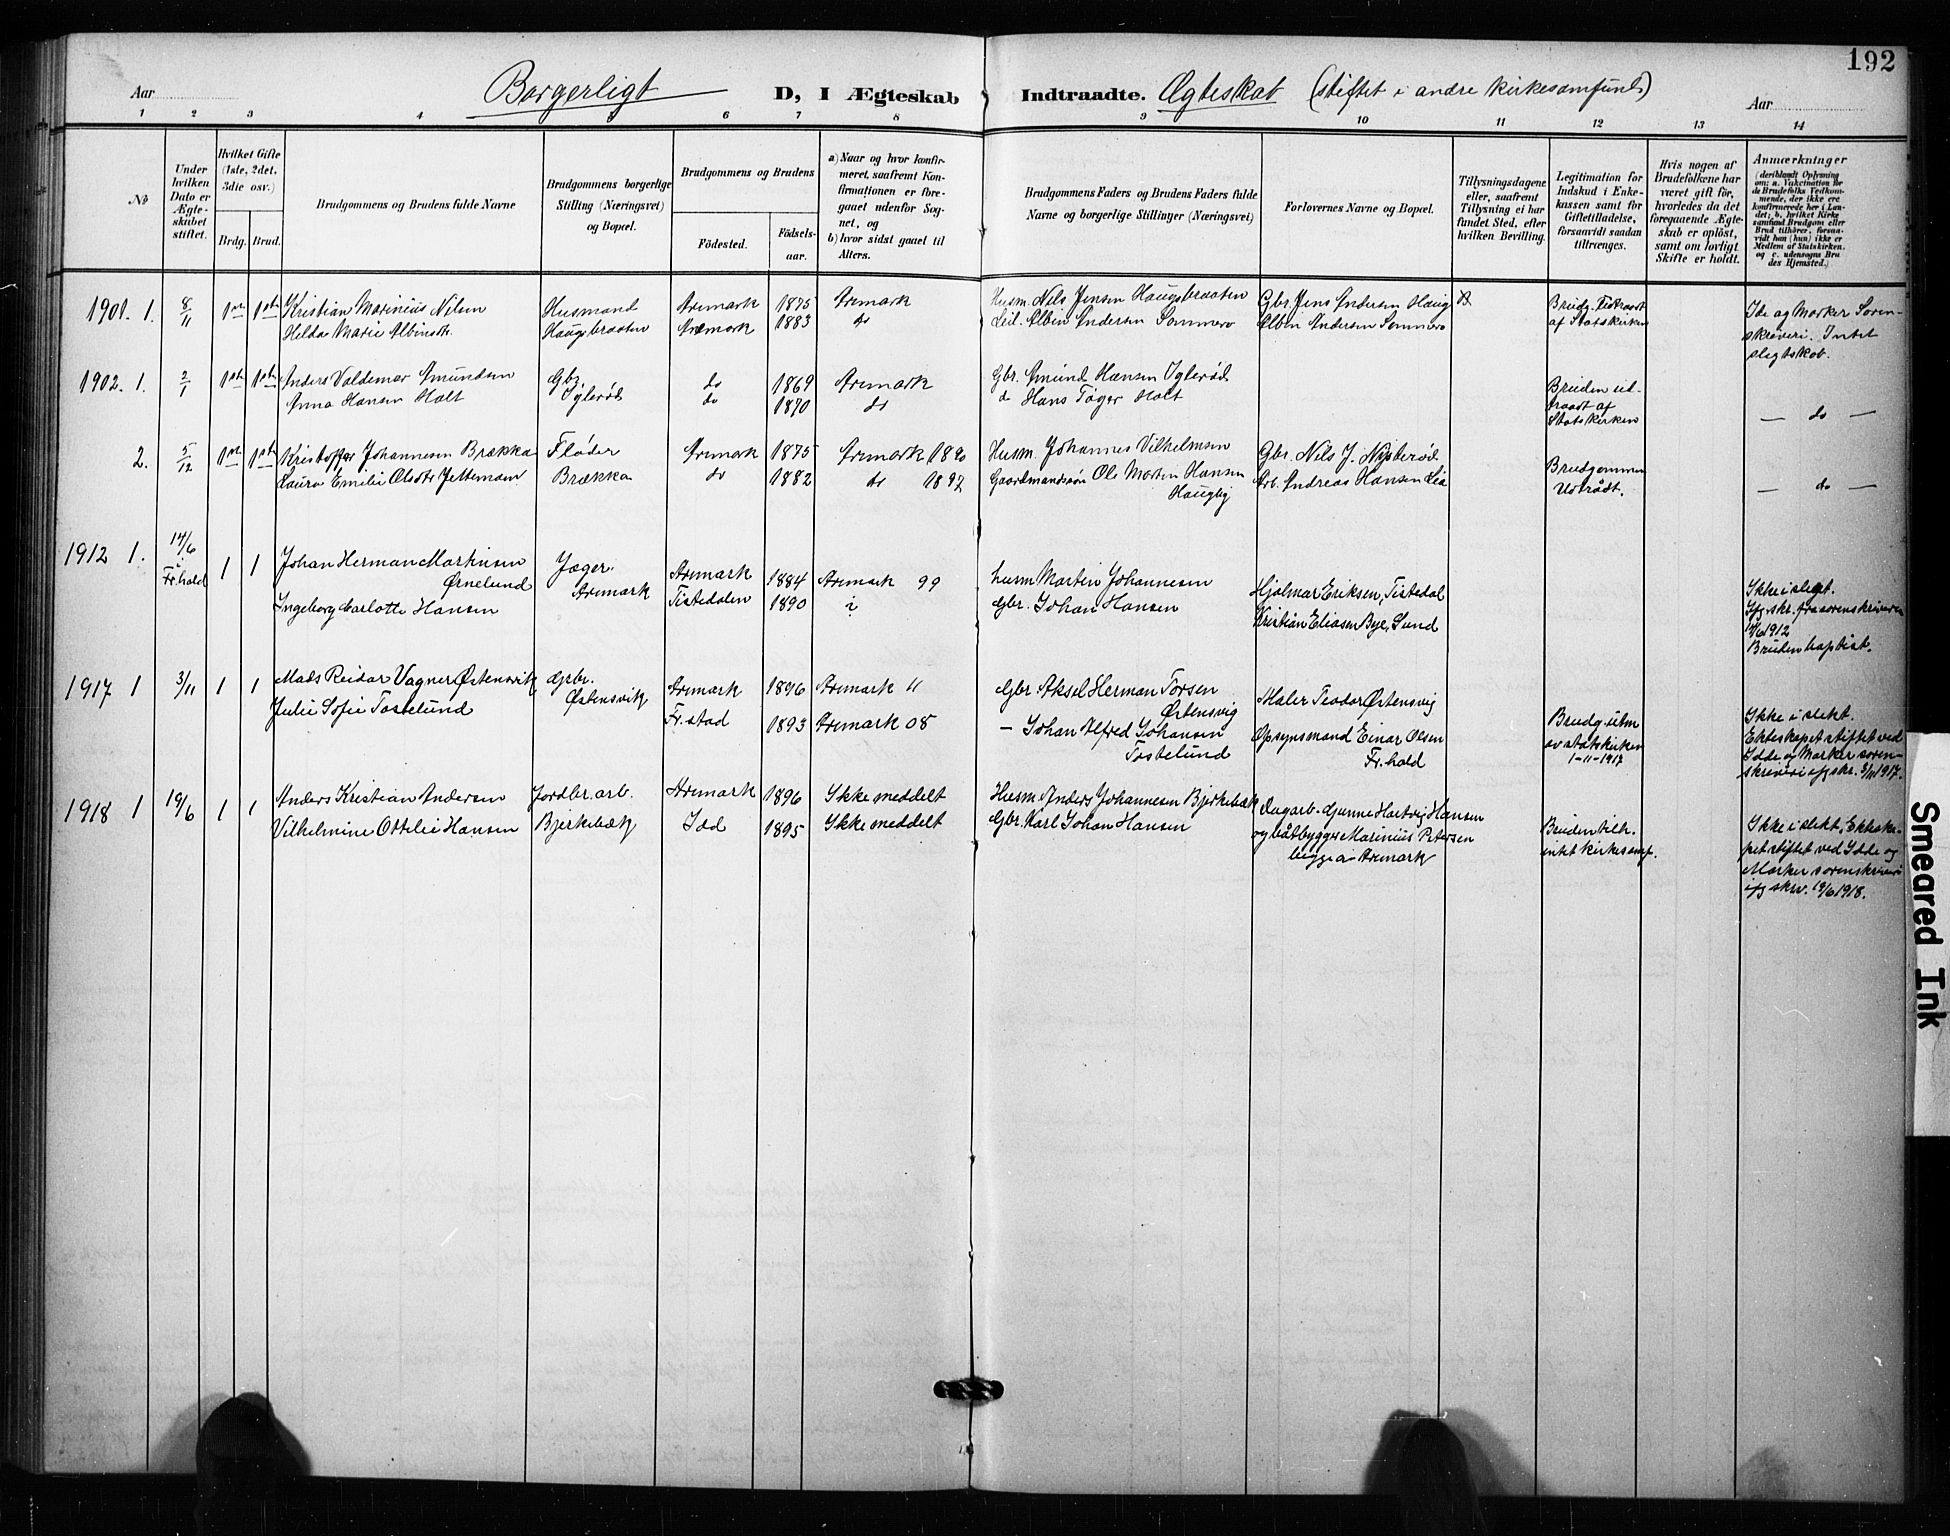 192
Aar
Borgerligt
D, I Ægteskab Indtraadte.
Ægteskab (stiftet i andre kirkesamfund)
Aar
1 2 3 4 5 6 7 8 9 10 11 12 13 14
No
Under hvilken Dato er Ægteskabet stiftet.
Hvilket Gifte (1ste, 2det, 3die osv.)
Brdg. Brud.
Brudgommens og Brudens fulde Navne
Brudgommens borgerlige Stilling (Næringsvei) og Bopæl.
Brudgommens og Brudens
Födested.
Födselsaar.
a) Naar og hvor konfirmeret, saafremt Konfirmationen er foregaaet udenfor Sognet, og
b) hvor sidst gaaet til Alters.
Brudgommens Faders og Brudens Faders fulde Navne og borgerlige Stillinger (Næringsvei)
Forlovernes Navne og Bopæl.
Tillysningsdagene eller, saafremt Tillysning ei har fundet Sted, efter hvilken Bevilling.
Legitimation for Indskud i Enkekassen samt for Giftetilladelse, forsaavidt saadan tiltrænges.
Hvis nogen af Brudefolkene har været gift før, hvorledes da det foregaaende Ægteskab er oplöst, samt om lovligt Skifte er holdt.
Anmærkninger (deriblandt Oplysning om: a. Vakcination for de Brudefolks Vedkommende, der ikke ere konfirmerede her i Landet; b. hvilket Kirkesamfund Brudgom eller Brud tilhører, forsaavidt han (hun) ikke er Medlem af Statskirken, og c. udensogns Brudes Hjemsted.)
1901. 1. 8/11 1ste 1ste Kristian Marinius Nilsen Husmand Aremark 1875 Aremark Husm. Nils Jensen Haugsbraaten Gbr. Jens Andersen Haug Brudg. Udtraadt
Helda Marie Albinsdtr. Haugsbraaten Aremark 1883 do Leil. Albin Andersen Sommero Albin Andersen Sommero af Statskirken
Ide og Marker Sorenskriveri. Intet slegtskab.
1902. 1. 2/1 1ste 1ste Anders Valdemar Amundsen Gbr. do 1869 Aremark Gbr. Amund Hansen Iglerød Bruden ud-
Anna Hansen Holt Iglerød do 1870 do do Hans Tøger Holt traadt af
Statskirken — do —
2. 5/12 1ste 1ste Kristoffer Johannesen Brækka Fløder Aremark 1875 Aremark 1890 Husm. Johannes Vilhelmsen Gbr. Nils J. Nysterød Brudgommen
Laura Emilie Olsdtr Brækka do 1882 do 1897 Gaardmandssøn Ole Morten Hansen Arb. Andreas Hansen Lia Udtrådt.
Haugby — do —
1912 1. 14/6 i Fr.hald 1 1 Johan Herman Martinsen Jæger. Aremark 1884 Aremark 99 husm Martin Johannesen Hjalmar Eriksen, Tistedal
Ørnelund Aremark
Ingeborg Carlotte Hansen Tistedalen 1890 gbr. Johan Hansen Kristian Eliasen Bye, Sund
Ikke i slegt.
Ifg. skr. fra sorenskriveren
14/6 1912
Bruden baptist.
1917 1 3/11 1 1 Mads Reidar Vagner Østensvik Grbr. Aremark 1896 Aremark 11 Gbr Aksel Herman Torsen Maler Teodor Østensvig
Julie Sofie Tostelund Østensvik Østensvig
Fr.stad 1893 Aremark 08 — Johan Alfred Johansen Opsynsmand Einar Olsen
Tostelund Fr.hald
Brudg. utm
av statskirken
1-11-1917
Ikke i slekt.
Ekteskapet stiftet ved
Idde og Marker soren-
skriveri ifg skr. 3/11 1917.
1918 1 19/6 1 1 Anders Kristian Andersen Jordbr.arb. Aremark 1896 Ikke meddelt Husm. Anders Johannesen Bjerkebæk Dagarb. Gunne Hartvig Hansen
Vilhelmine Ottilie Hansen Bjerkebæk Idd 1895 Ikke meddelt Gbr. Karl Johan Hansen og båtbygger Marinius Petersen
begge a Aremark
Bruden tilh.
intet kirkesamf.
Ikke i slekt, Ekteska-
pet stiftet ved Idde og
Marker sorenskriveri
ifg skr. 19/6 1918.
Smeared Ink